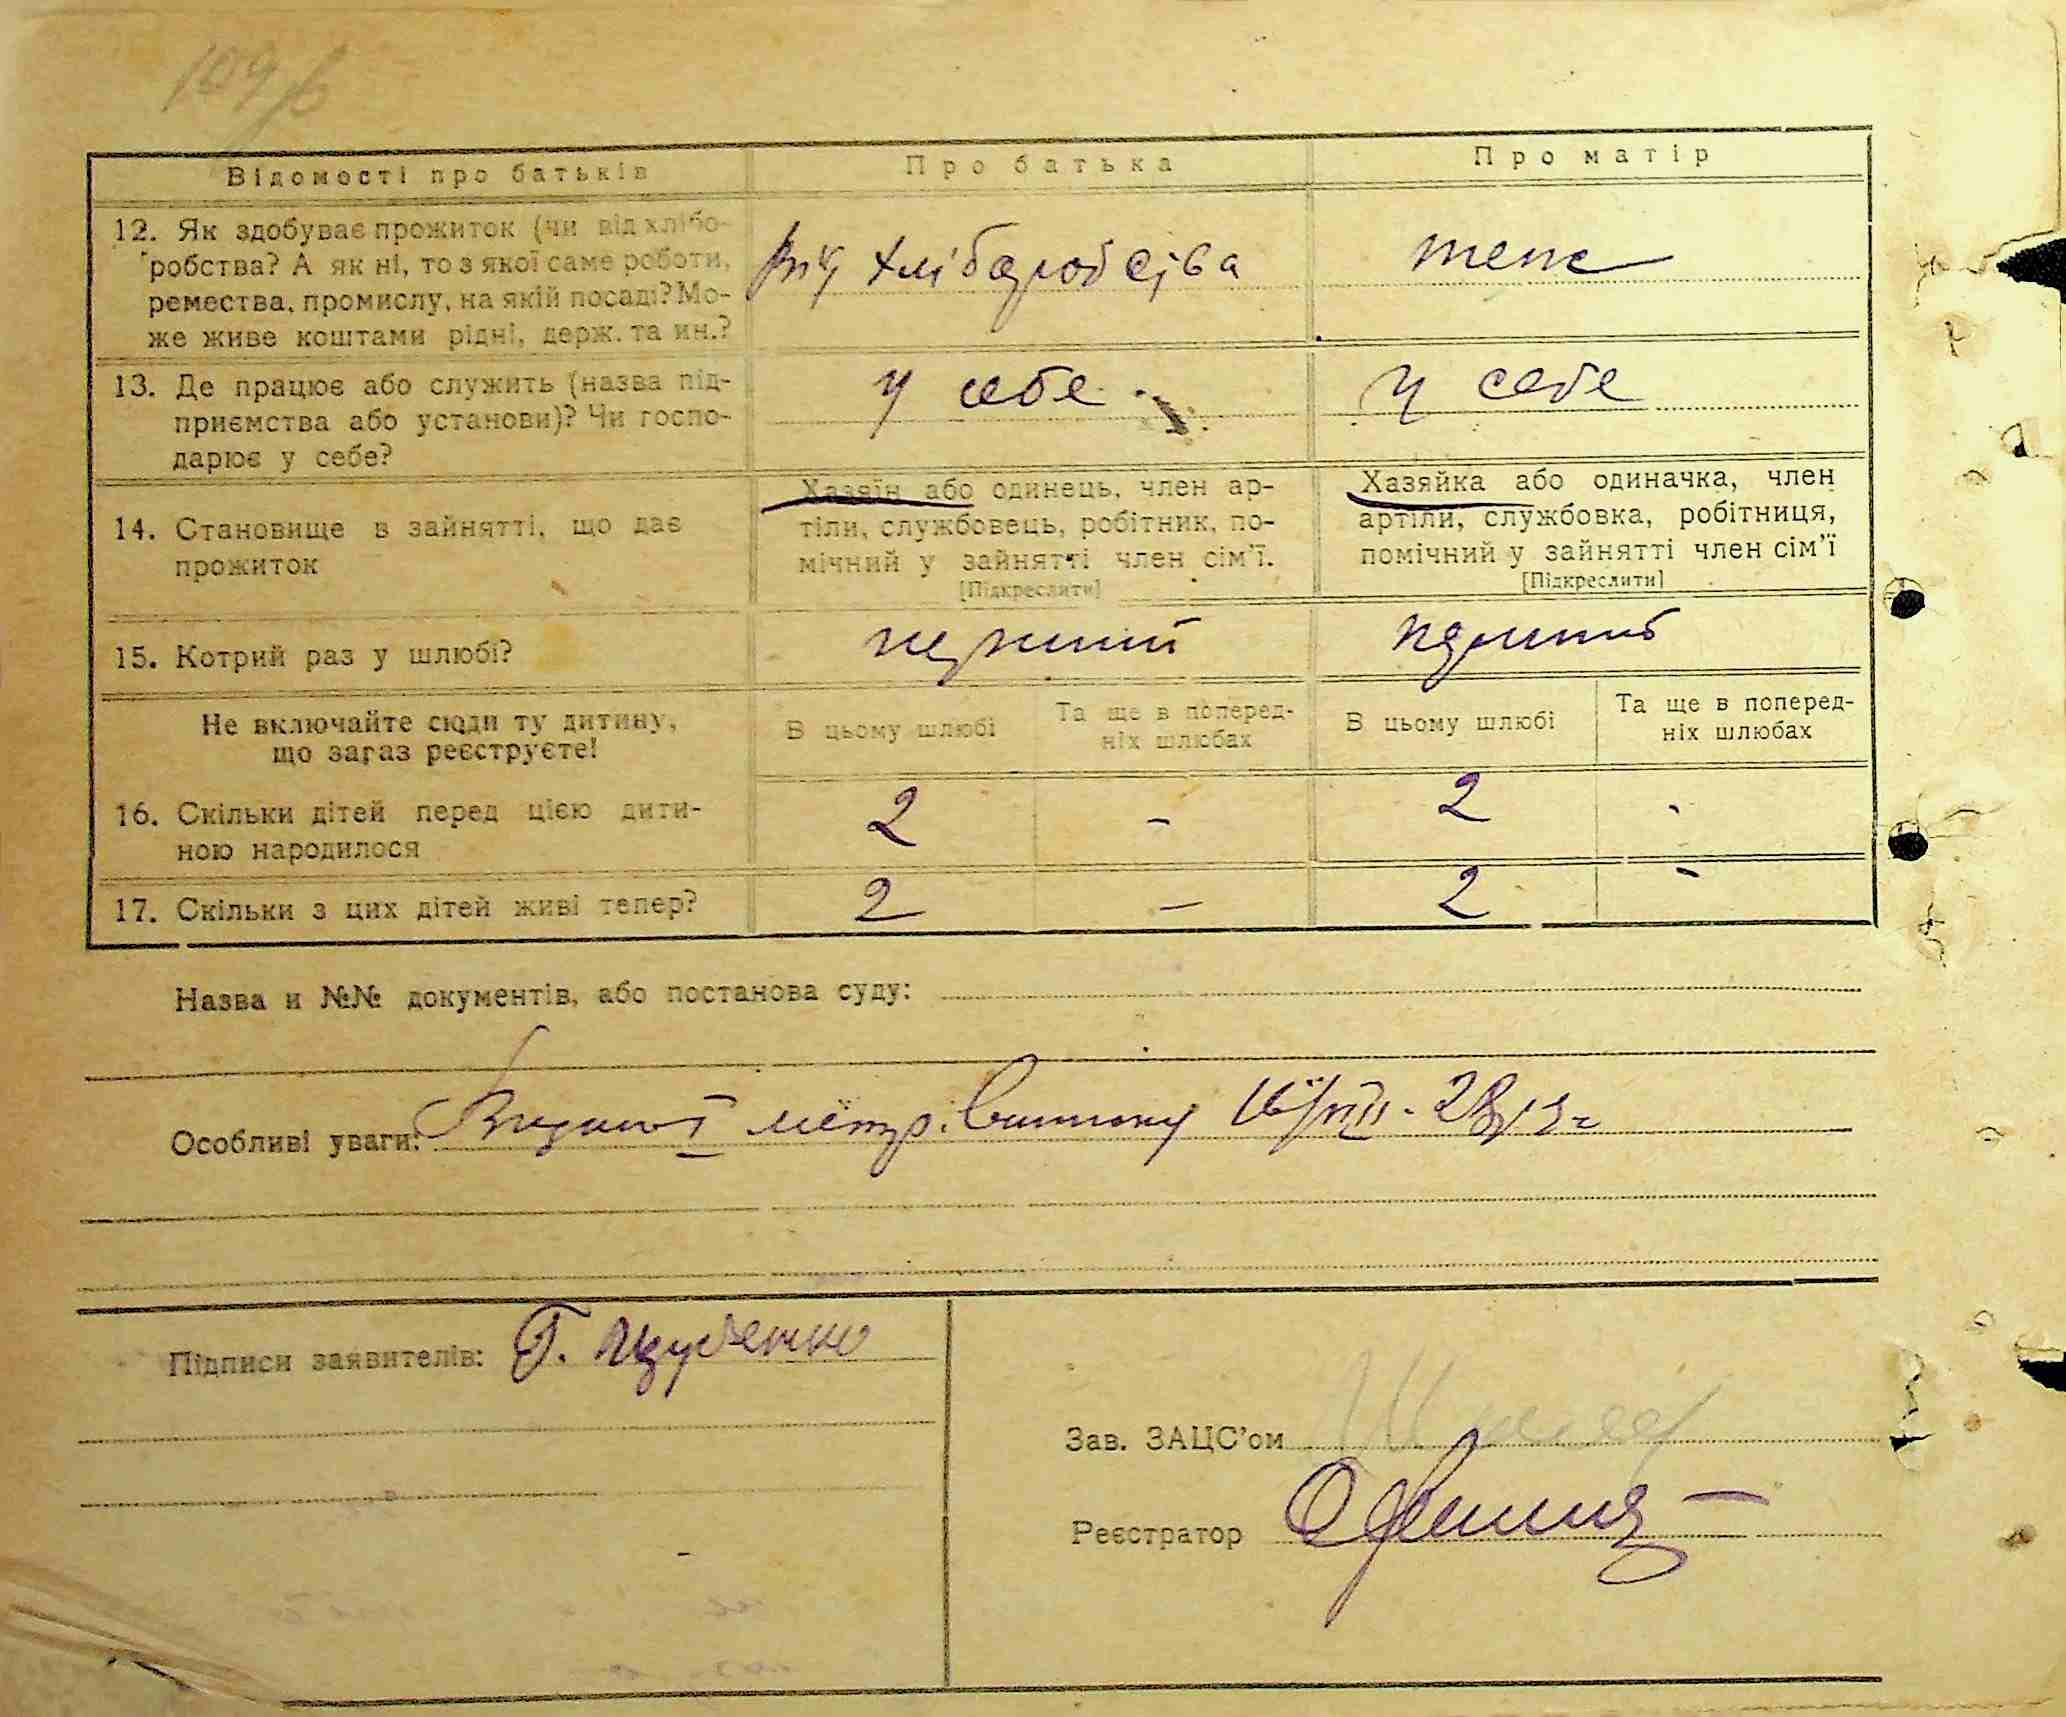 Відомості про батьків
Про батька
Про матір
12. Як здобуває прожиток (чи від хлібо-
робства? А як ні, то з якої саме роботи,
ремества, промислу, на якій посаді? Мо-
же живе коштами рідні, держ. та ин.?
від хліборобства
теж
13. Де працює або служить (назва під-
приємства або установи)? Чи госпо-
дарює у себе?
у себе
у себе
14. Становище в зайнятті, що дає
прожиток
Хазяїн або одинець, член ар-
тіли, службовець, робітник, по-
мічний у зайнятті член сім'ї.
[Підкреслити]
Хазяйка або одиначка, член
артіли, службовка, робітниця,
помічний у зайнятті член сім'ї
[Підкреслити]
15. Котрий раз у шлюбі?
перший
перший
Не включайте сюди ту дитину,
що зараз реєструєте!
В цьому шлюбі
Та ще в поперед-
ніх шлюбах
В цьому шлюбі
Та ще в поперед-
ніх шлюбах
16. Скільки дітей перед цією дити-
ною народилося
2 - 2 -
17. Скільки з цих дітей живі тепер?
2 - 2 -
Назва и №№ документів, або постанова суду:
Особливі уваги: метр. виписку
Підписи заявителів: Г.
Зав. ЗАЦС'ом
Реєстратор